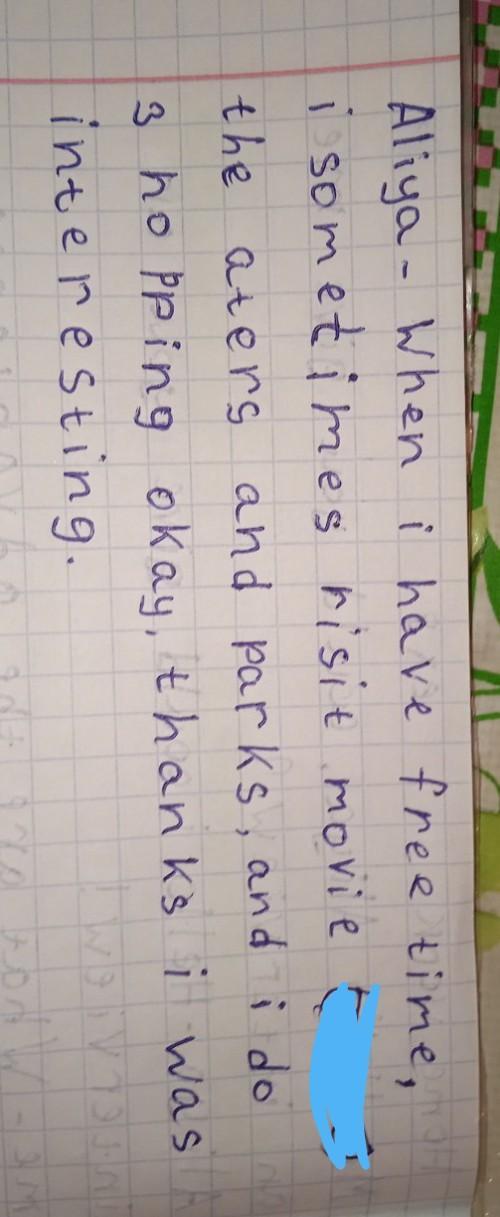 Aliya- When i have free time,
i sometimes risit movie
the aters and parks, and i do
s hopping okay, thanks i was
interesting.